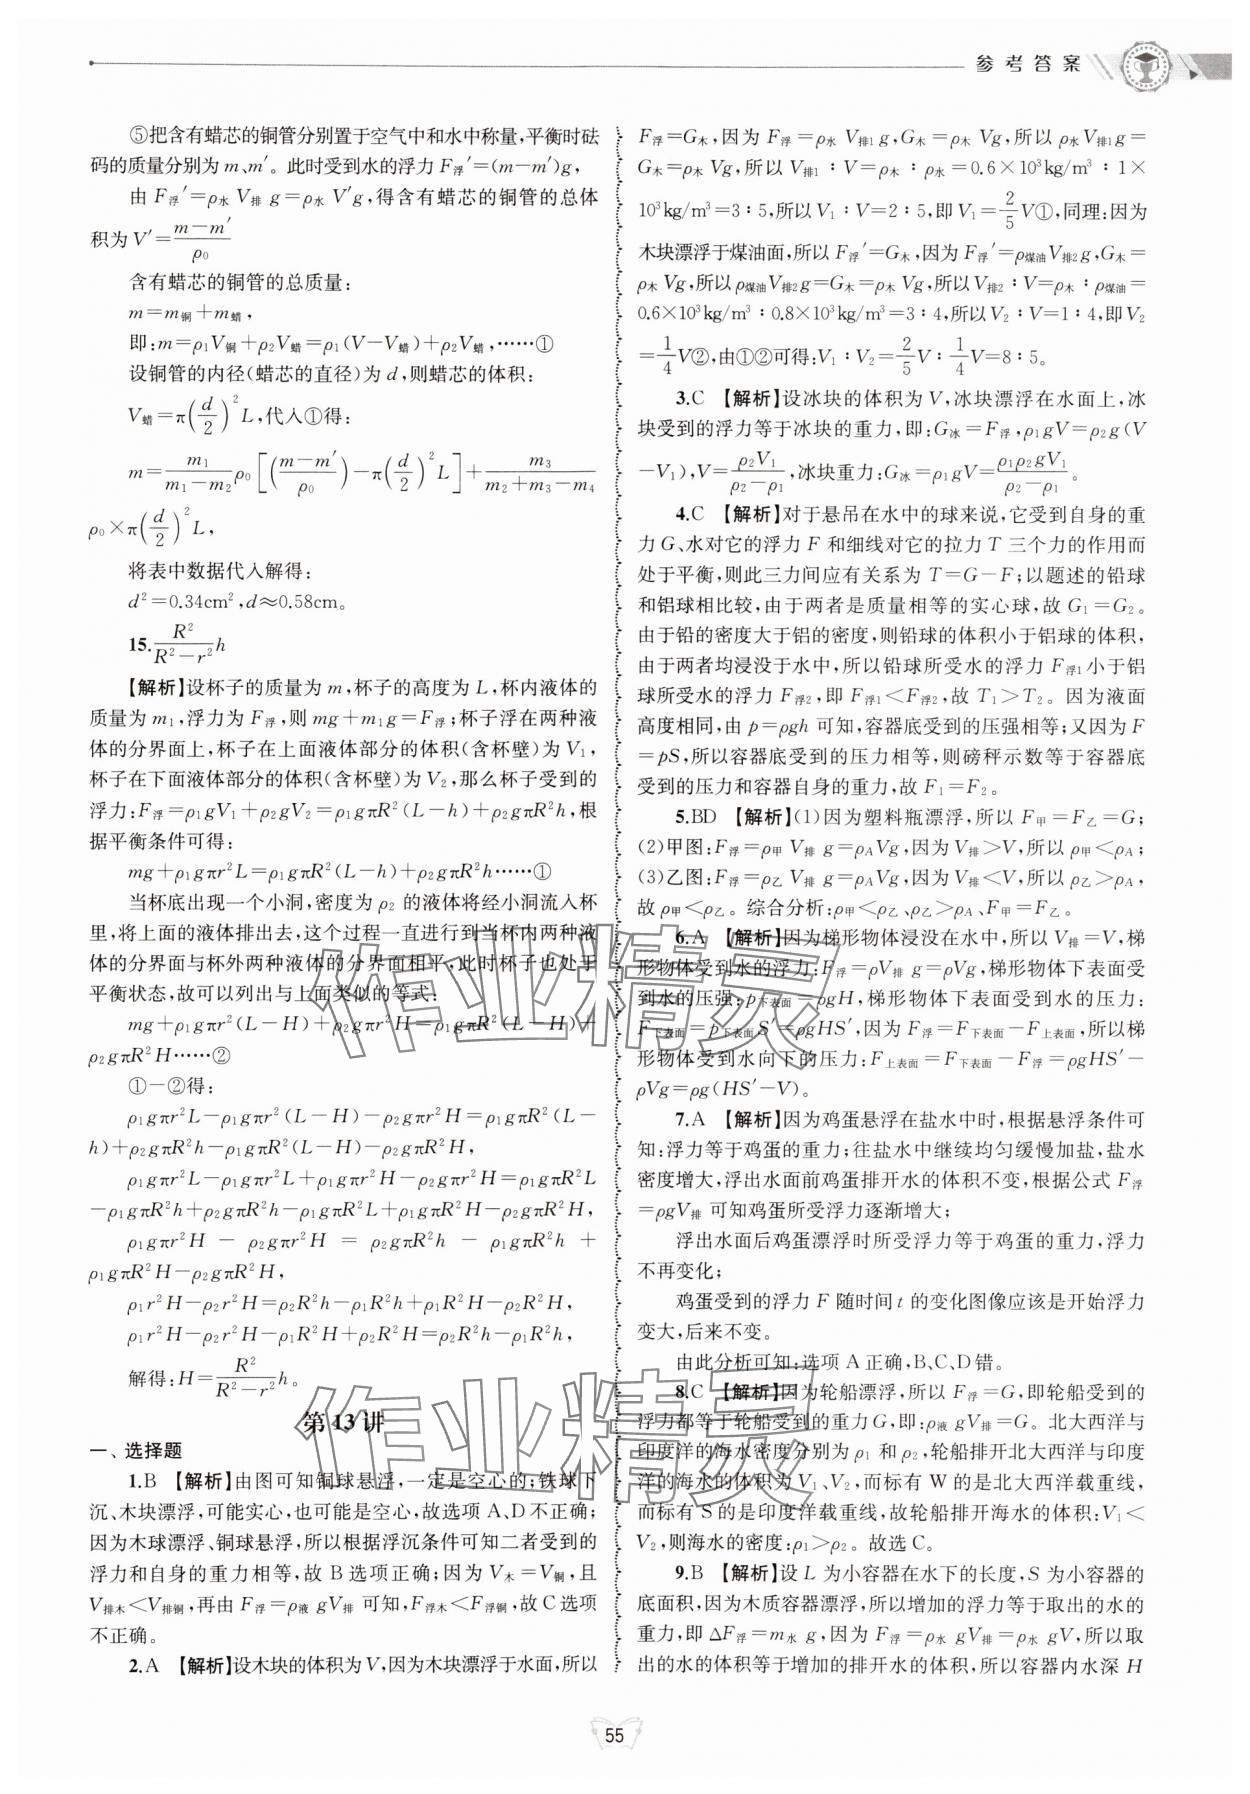 参考答案
⑤把含有蜡芯的铜管分别置于空气中和水中称量,平衡时砝
码的质量分别为 m、m′。此时受到水的浮力 F浮′=(m-m′)g,
由 F浮′=ρ水 V排 g=ρ水 V′g,得含有蜡芯的铜管的总体
积为 V′=(m-m′)/ρ₀
含有蜡芯的铜管的总质量:
m=m铜+m蜡,
即:m=ρ₁V铜+ρ₂V蜡=ρ₁(V-V蜡)+ρ₂V蜡,……①
设铜管的内径(蜡芯的直径)为 d,则蜡芯的体积:
V蜡=π(d/2)²L,代入①得:
m=m₁/(m₁-m₂)ρ₀[((m-m′)/ρ₀)-π(d/2)²L]+m₃/(m₂+m₃-m₄)
ρ₀×π(d/2)²L,
将表中数据代入解得:
d²=0.34cm²,d≈0.58cm。
15.R²/(R²-r²)h
【解析】设杯子的质量为 m,杯子的高度为 L,杯内液体的
质量为 m₁,浮力为 F浮,则 mg+m₁g=F浮;杯子浮在两种液
体的分界面上,杯子在上面液体部分的体积(含杯壁)为 V₁,
杯子在下面液体部分的体积(含杯壁)为 V₂,那么杯子受到的
浮力:F浮=ρ₁gV₁+ρ₂gV₂=ρ₁gπR²(L-h)+ρ₂gπR²h,根
据平衡条件可得:
mg+ρ₁gπr²L=ρ₁gπR²(L-h)+ρ₂gπR²h……①
当杯底出现一个小洞,密度为 ρ₂ 的液体将经小洞流入杯
里,将上面的液体排出去,这个过程一直进行到当杯内两种液
体的分界面与杯外两种液体的分界面相平,此时杯子也处于
平衡状态,故可以列出与上面类似的等式:
mg+ρ₁gπr²(L-H)+ρ₂gπr²H=ρ₁gπR²(L-H)+
ρ₂gπR²H……②
①-②得:
ρ₁gπr²L-ρ₁gπr²(L-H)-ρ₂gπr²H=ρ₁gπR²(L-
h)+ρ₂gπR²h-ρ₁gπR²(L-H)-ρ₂gπR²H,
ρ₁gπr²L-ρ₁gπr²L+ρ₁gπr²H-ρ₂gπr²H=ρ₁gπR²L
-ρ₁gπR²h+ρ₂gπR²h-ρ₁gπR²L+ρ₁gπR²H-ρ₂gπR²H,
ρ₁gπr²H-ρ₂gπr²H=ρ₂gπR²h-ρ₁gπR²h+
ρ₁gπR²H-ρ₂gπR²H,
ρ₁r²H-ρ₂r²H=ρ₂R²h-ρ₁R²h+ρ₁R²H-ρ₂R²H,
ρ₁r²H-ρ₂r²H-ρ₁R²H+ρ₂R²H=ρ₂R²h-ρ₁R²h,
解得:H=R²/(R²-r²)h。
第 13 讲
一、选择题
1.B 【解析】由图可知铜球悬浮,一定是空心的;铁球下
沉、木块漂浮,可能实心,也可能是空心,故选项 A、D 不正确;
因为木球漂浮、铜球悬浮,所以根据浮沉条件可知二者受到的
浮力和自身的重力相等,故 B 选项正确;因为 V木=V铜,且
V排木<V排铜,再由 F浮=ρ液 gV排 可知,F浮木<F浮铜,故 C 选项
不正确。
2.A 【解析】设木块的体积为 V,因为木块漂浮于水面,所以
F浮=G木,因为 F浮=ρ水 V排1 g,G木=ρ木 Vg,所以 ρ水 V排1 g=
G木=ρ木 Vg,所以 V排1∶V=ρ木∶ρ水=0.6×10³kg/m³∶1×
10³kg/m³=3∶5,所以 V₁∶V=2∶5,即 V₁=2/5V①,同理:因为
木块漂浮于煤油面,所以 F浮′=G木,因为 F浮′=ρ煤油 V排2 g,G木=
ρ木 Vg,所以 ρ煤油 V排2 g=G木=ρ木 Vg,所以 V排2∶V=ρ木∶ρ煤油=
0.6×10³kg/m³∶0.8×10³kg/m³=3∶4,所以 V₂∶V=1∶4,即 V₂
=1/4V②,由①②可得:V₁∶V₂=2/5V∶1/4V=8∶5。
3.C 【解析】设冰块的体积为 V,冰块漂浮在水面上,冰
块受到的浮力等于冰块的重力,即:G冰=F浮,ρ₁gV=ρ₂g(V
-V₁),V=ρ₂V₁/(ρ₂-ρ₁),冰块重力:G冰=ρ₁gV=ρ₁ρ₂gV₁/(ρ₂-ρ₁)。
4.C 【解析】对于悬吊在水中的球来说,它受到自身的重
力 G、水对它的浮力 F 和细线对它的拉力 T 三个力的作用而
处于平衡,则此三力间应有关系为 T=G-F;以题述的铅球
和铝球相比较,由于两者是质量相等的实心球,故 G₁=G₂。
由于铅的密度大于铝的密度,则铅球的体积小于铝球的体积,
由于两者均浸没于水中,所以铅球所受水的浮力 F浮1 小于铝
球所受水的浮力 F浮2,即 F浮1<F浮2,故 T₁>T₂。因为液面
高度相同,由 p=ρgh 可知,容器底受到的压强相等;又因为 F
=pS,所以容器底受到的压力相等,则磅秤示数等于容器底受
到的压力和容器自身的重力,故 F₁=F₂。
5.BD 【解析】(1)因为塑料瓶漂浮,所以 F甲=F乙=G;
(2)甲图:F浮=ρ甲 V排 g=ρAVg,因为 V排>V,所以 ρ甲<ρA;
(3)乙图:F浮=ρ乙 V排 g=ρAVg,因为 V排<V,所以 ρ乙>ρA,
故 ρ甲<ρ乙。综合分析:ρ甲<ρ乙、ρ乙>ρA、F甲=F乙。
6.A 【解析】因为梯形物体浸没在水中,所以 V排=V,梯
形物体受到水的浮力:F浮=ρV排 g=ρVg,梯形物体下表面受
到水的压强:p下表面=ρgH,梯形物体下表面受到水的压力:
F下表面=p下表面S′=ρgHS′,因为 F浮=F下表面-F上表面,所以梯
形物体受到水向下的压力:F上表面=F下表面-F浮=ρgHS′-
ρVg=ρg(HS′-V)。
7.A 【解析】因为鸡蛋悬浮在盐水中时,根据悬浮条件可
知:浮力等于鸡蛋的重力;往盐水中继续均匀缓慢加盐,盐水
密度增大,浮出水面前鸡蛋排开水的体积不变,根据公式 F浮
=ρgV排 可知鸡蛋所受浮力逐渐增大;
浮出水面后鸡蛋漂浮时所受浮力等于鸡蛋的重力,浮力
不再变化;
鸡蛋受到的浮力 F 随时间 t 的变化图像应该是开始浮力
变大,后来不变。
由此分析可知:选项 A 正确,B、C、D 错。
8.C 【解析】因为轮船漂浮,所以 F浮=G,即轮船受到的
浮力都等于轮船受到的重力 G,即:ρ液 gV排=G。北大西洋与
印度洋的海水密度分别为 ρ₁ 和 ρ₂,轮船排开北大西洋与印度
洋的海水的体积为 V₁、V₂,而标有 W 的是北大西洋载重线,
而标有 S 的是印度洋载重线,故轮船排开海水的体积:V₁<
V₂,则海水的密度:ρ₁>ρ₂。故选 C。
9.B 【解析】设 L 为小容器在水下的长度,S 为小容器的
底面积,因为木质容器漂浮,所以增加的浮力等于取出的水的
重力,即 ΔF浮=m水 g,因为 F浮=ρ水 gV排=ρ水 gV,所以取
出的水的体积等于增加的排开水的体积,所以容器内水深 H
55
作业精灵
作业精灵